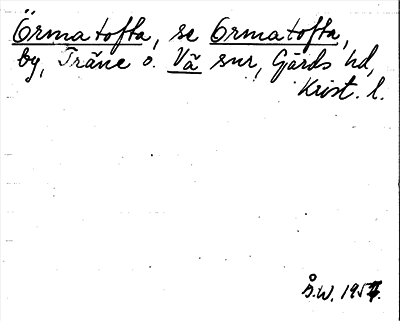 Örmatofta, se Ormatofta,
by, Träne o. Vä snr, Gärds hd,
Krist. l.
Å.W. 195